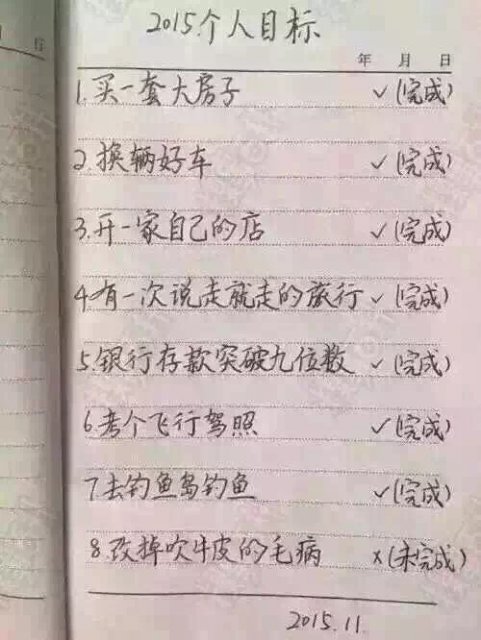 2015个人目标
年 月 日
1.买一套大房子 ✓(完成)
2.换辆好车 ✓(完成)
3.开一家自己的店 ✓(完成)
4.有一次说走就走的旅行 ✓(完成)
5.银行存款突破九位数 ✓(完成)
6.考个飞行驾照 ✓(完成)
7.去钓鱼岛钓鱼 ✓(完成)
8.改掉吹牛皮的毛病 x(未完成)
2015.11.